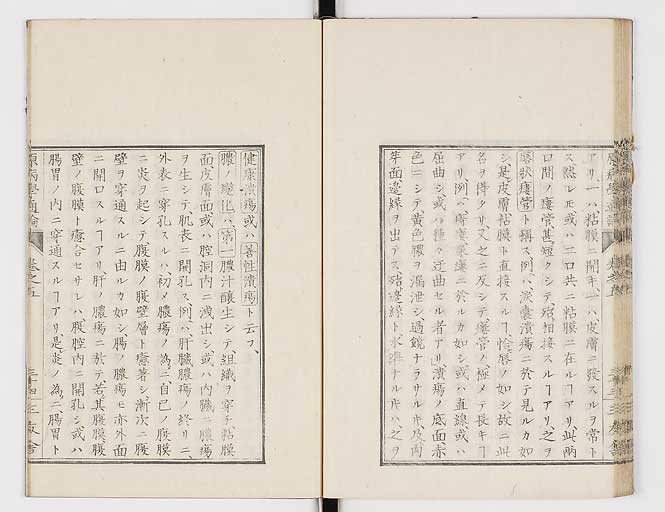 アリ、一ハ粘膜ニ開キ一ハ皮膚ニ發スルヲ常ト
ス然レ𪜈或ハ二口共ニ粘膜ニ在ルヿアリ、此両
口間ノ瘻管甚短クシテ殆相接スルヿアリ、之ヲ
唇状瘻管ト稱ス例ハ、淚囊潰瘍ニ於テ見ルカ如
シ是皮膚粘膜ト直接スルヿ、恰唇ノ如シ故ニ此
名ヲ得タリ、又之ニ反シテ瘻管ノ極メテ長キヿ
アリ、例ハ、痔瘻ニ於ルカ如シ或ハ直線或ハ
屈曲シ或ハ種々迂曲セル者アリ潰瘍ノ底面赤
色ニシテ黄色膿ヲ漏泄シ、過饒ナラサル𪜈、皮肉
芽面邊緣ヲ出テス、殆邊緣ト水準ナル𪜈ハ、之ヲ
健康潰瘍或ハ善性潰瘍ト云フ、
膿ノ變化ハ、第一膿汁釀生シテ組織ヲ穿チ粘膜
面、皮膚面或ハ腔洞内ニ洩出シ、或ハ内臓ニ膿瘍
ヲ生シテ、肌表ニ開孔ス、例ハ、肝臓膿瘍ノ終リニ、
外表ニ穿孔スルハ、初メ膿瘍ノ為ニ、自己ノ腹膜
ニ炎ヲ起シテ、腹膜ノ腹壁層ト癒著シ、漸次ニ腹
壁ヲ穿通スルニ由ルカ如シ腸ノ膿瘍モ亦外面
ニ開口スルヿアリ、肝ノ膿瘍ニ於テ若其腹膜腹
壁ノ腹膜ト癒合セサレハ、腹腔内ニ開孔シ或ハ
腸胃ノ内ニ穿通スルヿアリ、是炎ノ為ニ腸胃ト
原病學通論 卷之五 三十四 三友舍